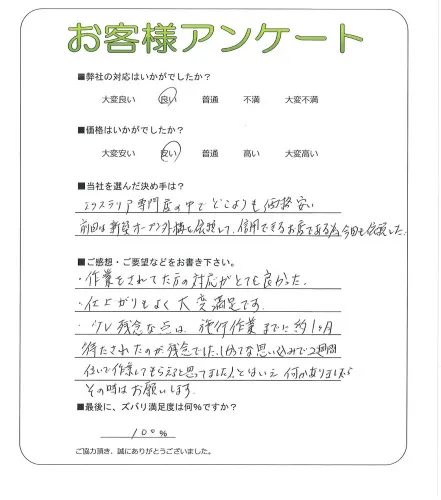 お客様アンケート
■弊社の対応はいかがでしたか?
大変良い 良い 普通 不満 大変不満
■価格はいかがでしたか?
大変安い 安い 普通 高い 大変高い
■当社を選んだ決め手は?
エクステリア専門店の中でどこよりも価格安い
前回は新築オープン外構を依頼して、信用できるお店である為今回も依頼した。
■ご感想・ご要望などをお書き下さい。
・作業をされてた方の対応がとても良かった。
・仕上がりもよく大変満足です。
・少し残念な点は、施行作業までに約1ヶ月
待たされたのが残念でした。(勝手な思い込みで2週間
位いで作業してもらえると思ってました)とはいえ何かありましたら
その時はお願いします。
■最後に、ズバリ満足度は何%ですか?
100%
ご協力頂き、誠にありがとうございました。